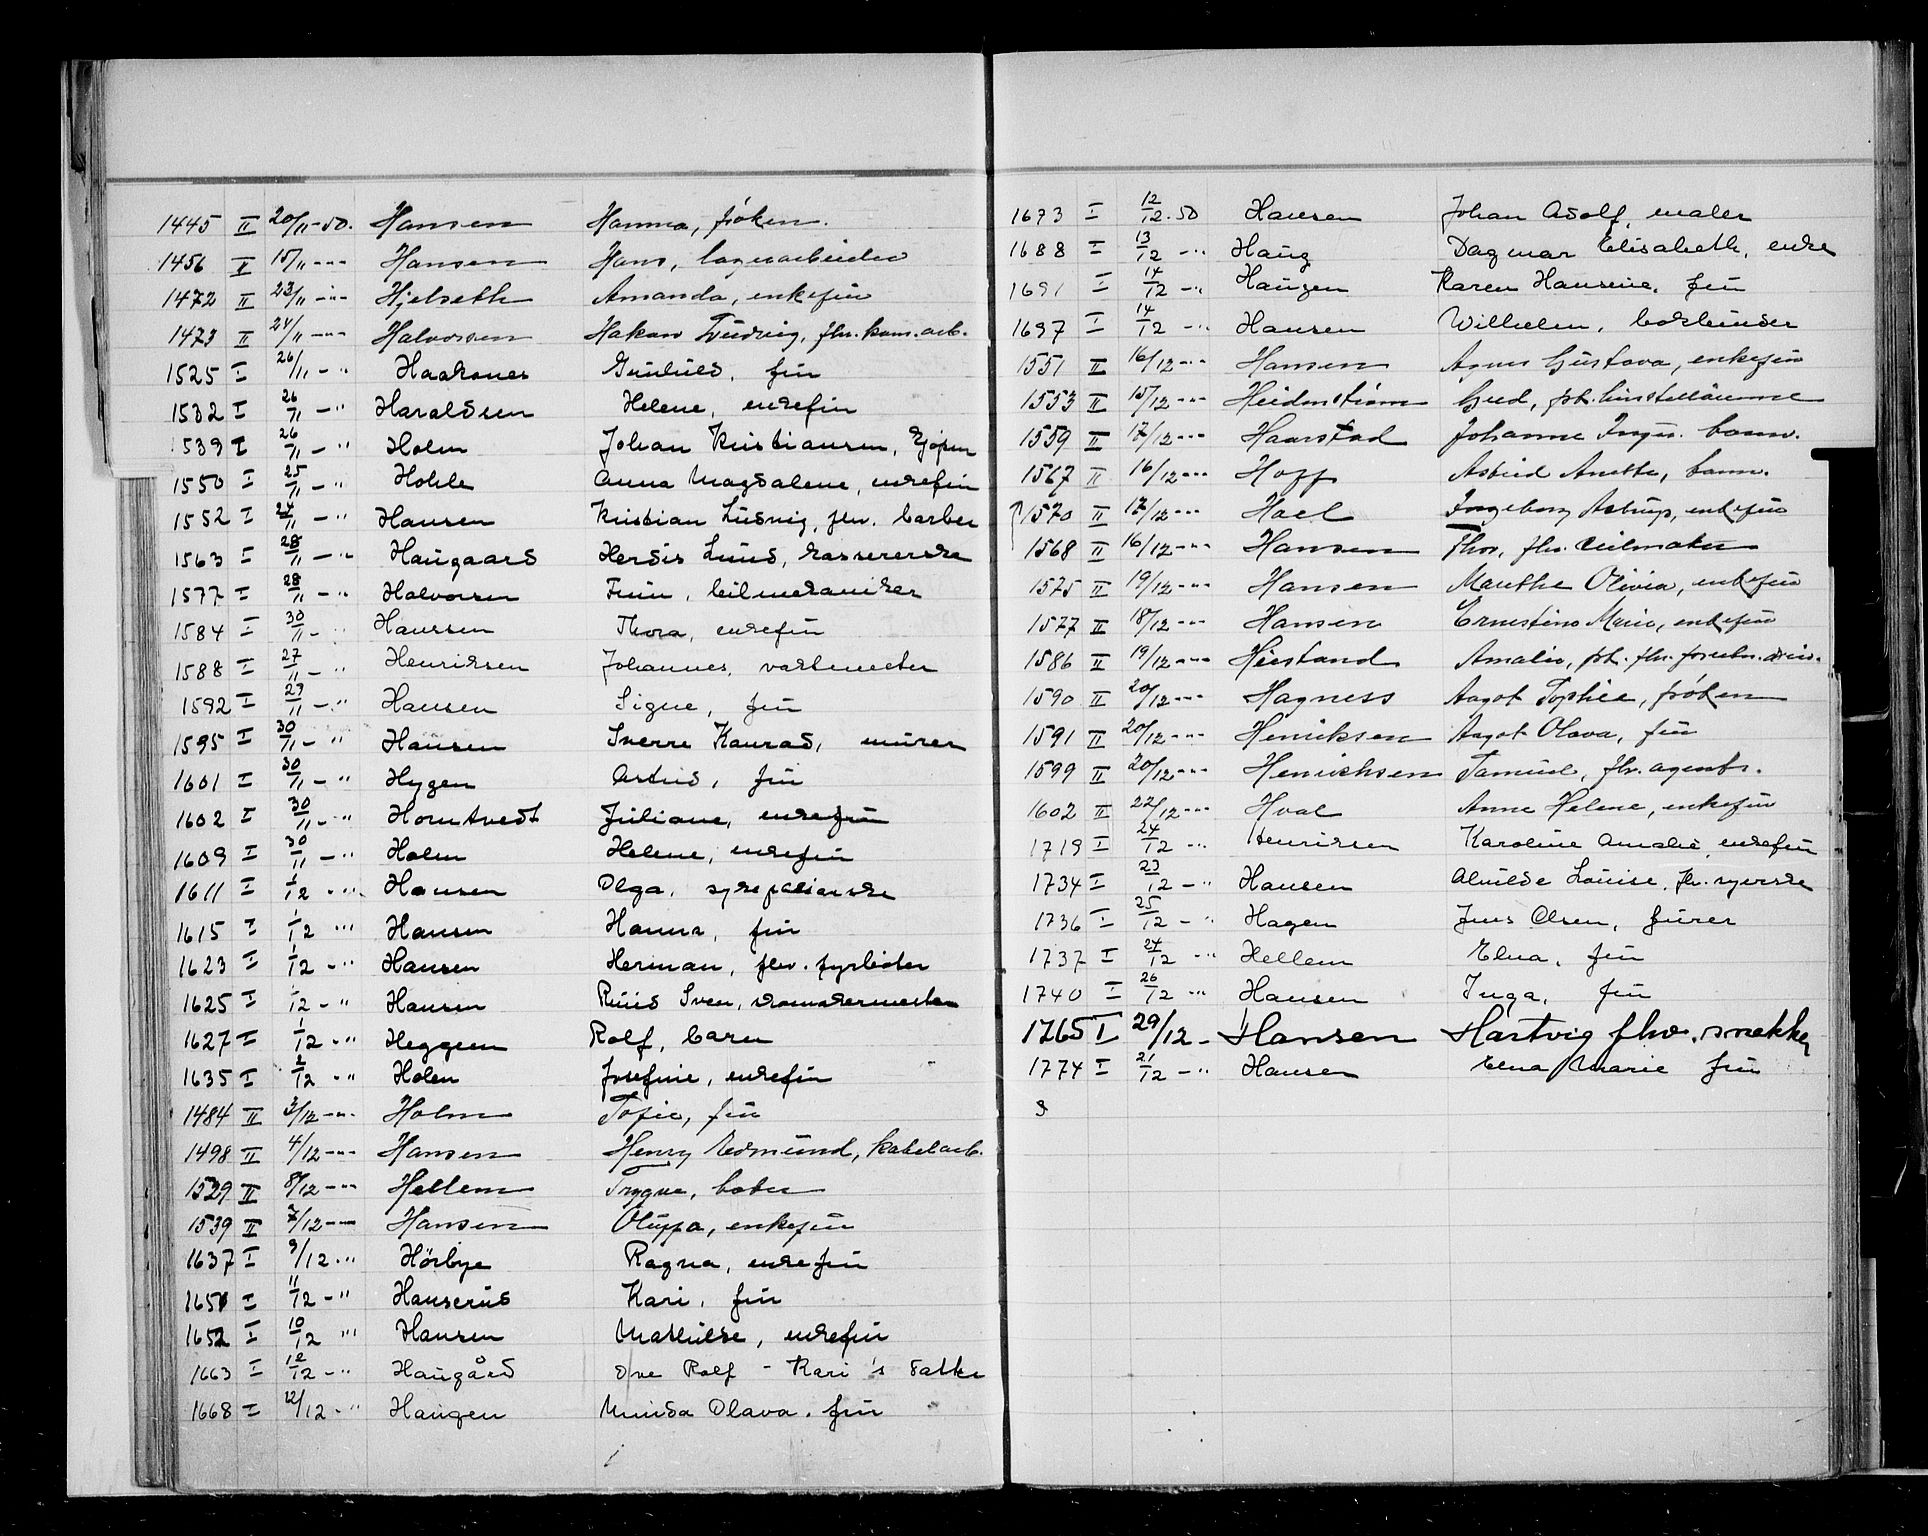 1445 II 20/11-50. Hansen Hanna, frøken.
1456 II 15/11 -"- Hansen Hans, lagerarbeider
1472 II 23/11 -"- Hjelseth Amanda, enkefru
1473 II 24/11 -"- Halvorsen Håkon Ludvig, fhv. kom. arb.
1525 I 26/11 - " Haakones Gunhild, fru
1532 I 26/11 - " Haraldsen Helene, enkefru
1539 I 26/11 - " Holm Johan Kristiansen,
1550 I 25/11 - " Hohle Anna Magdalene, enkefru
1552 I 24/11 - " Hansen Kristian Ludvig, fhv. barber
1563 I 28/11 - " Haugaard Herdis Lund, kassererske
1577 I 28/11 - " Halvorsen Finn, bilmekaniker
1584 I 30/11 - " Hanssen Thora, enkefru
1588 I 27/11 - " Henriksen Johannes, vaktmester
1592 I 27/11 - " Hansen Signe, fru
1595 I 30/11 - " Hansen Sverre Konrad, murer
1601 I 30/11 - " Hygen Astrid, fru
1602 I 30/11 - " Horntvedt Juliane, enkefru
1609 I 30/11 - " Holm Helene, enkefru
1611 I 1/12 - " Hansen Olga, sykepleierske
1615 I 1/12 - " Hansen Hanna, fru
1623 I 1/12 - " Hansen Herman, fhv. fyrbøter
1625 I 1/12 - " Hansen Ruud Sven, skomakermester
1627 I 1/12 - " Heggem Rolf, barn
1635 I 2/12 - " Holen Josefine, enkefru
1484 II 3/12 -"- Holm Sofie, fru
1498 II 4/12 -"- Hansen Henry Edmund, kabelarb.
1529 II 8/12 -"- Hellem Trygve, bøter
1539 II 7/12 -"- Hansen Oluffa, enkefru
1637 I 9/12 - " Hörbye Ragna, enkefru
1651 I 11/12 - " Hanserud Kari, fru
1652 I 10/12 " Hansen Mathilde, enkefru
1663 I 12/12 - " Haugård Ove Rolf - Kari's
1668 I 12/12 - " Haugen Minda Olava, fru
1673 I 12/12.50 Hansen Johan Adolf, maler
1688 I 13/12 - " Haug Dagmar Elisabeth, enke
1691 I 14/12 - " Haugen Karen Hansine, fru
1697 I 14/12 - " Hansen Wilhelm, bokbinder
1551 II 16/12 -"- Hansen Agnes Gustava, enkefru
1553 II 15/12 -"- Heidenstrøm Gud, frk.
1559 II 17/12 -"- Haarstad Johanne Inger, barn.
1567 II 16/12 -"- Hoff Astrid Anette, barn.
1570 II 17/12 -"- Hoel Ingeborg Astrup, enkefru
1568 II 16/12 -"- Hansen Thor, fhv. seilmaker
1575 II 19/12 -"- Hansen Marthe Olivia, enkefru
1577 II 18/12 -"- Hansen Ernestine Marie, enkefru
1586 II 19/12 -"- Heistand Amalie, frk. fhv.
1590 II 20/12 -"- Hagness Aagot Sophie, frøken
1591 II 20/12 -"- Henriksen Aagot Olava, fru
1599 II 20/12 -"- Henrichsen Samuel, fhv. agent.
1602 II 22/12 -"- Hval Anne Helene, enkefru
1719 I 24/12 - " Henriksen Karoline Amalie, enkefru
1734 I 23/12 - " Hansen Alvilde Louise, fhv. syerske
1736 I 25/12 - " Hagen Jens Olsen, furer
1737 I 24/12 - " Hellem Elna, fru
1740 I 26/12 - " Hansen Inga, fru
1765 I 29/12 - Hansen Hartvig fhv. snekker
1774 I 21/12 - " Hansen Elna Marie fru